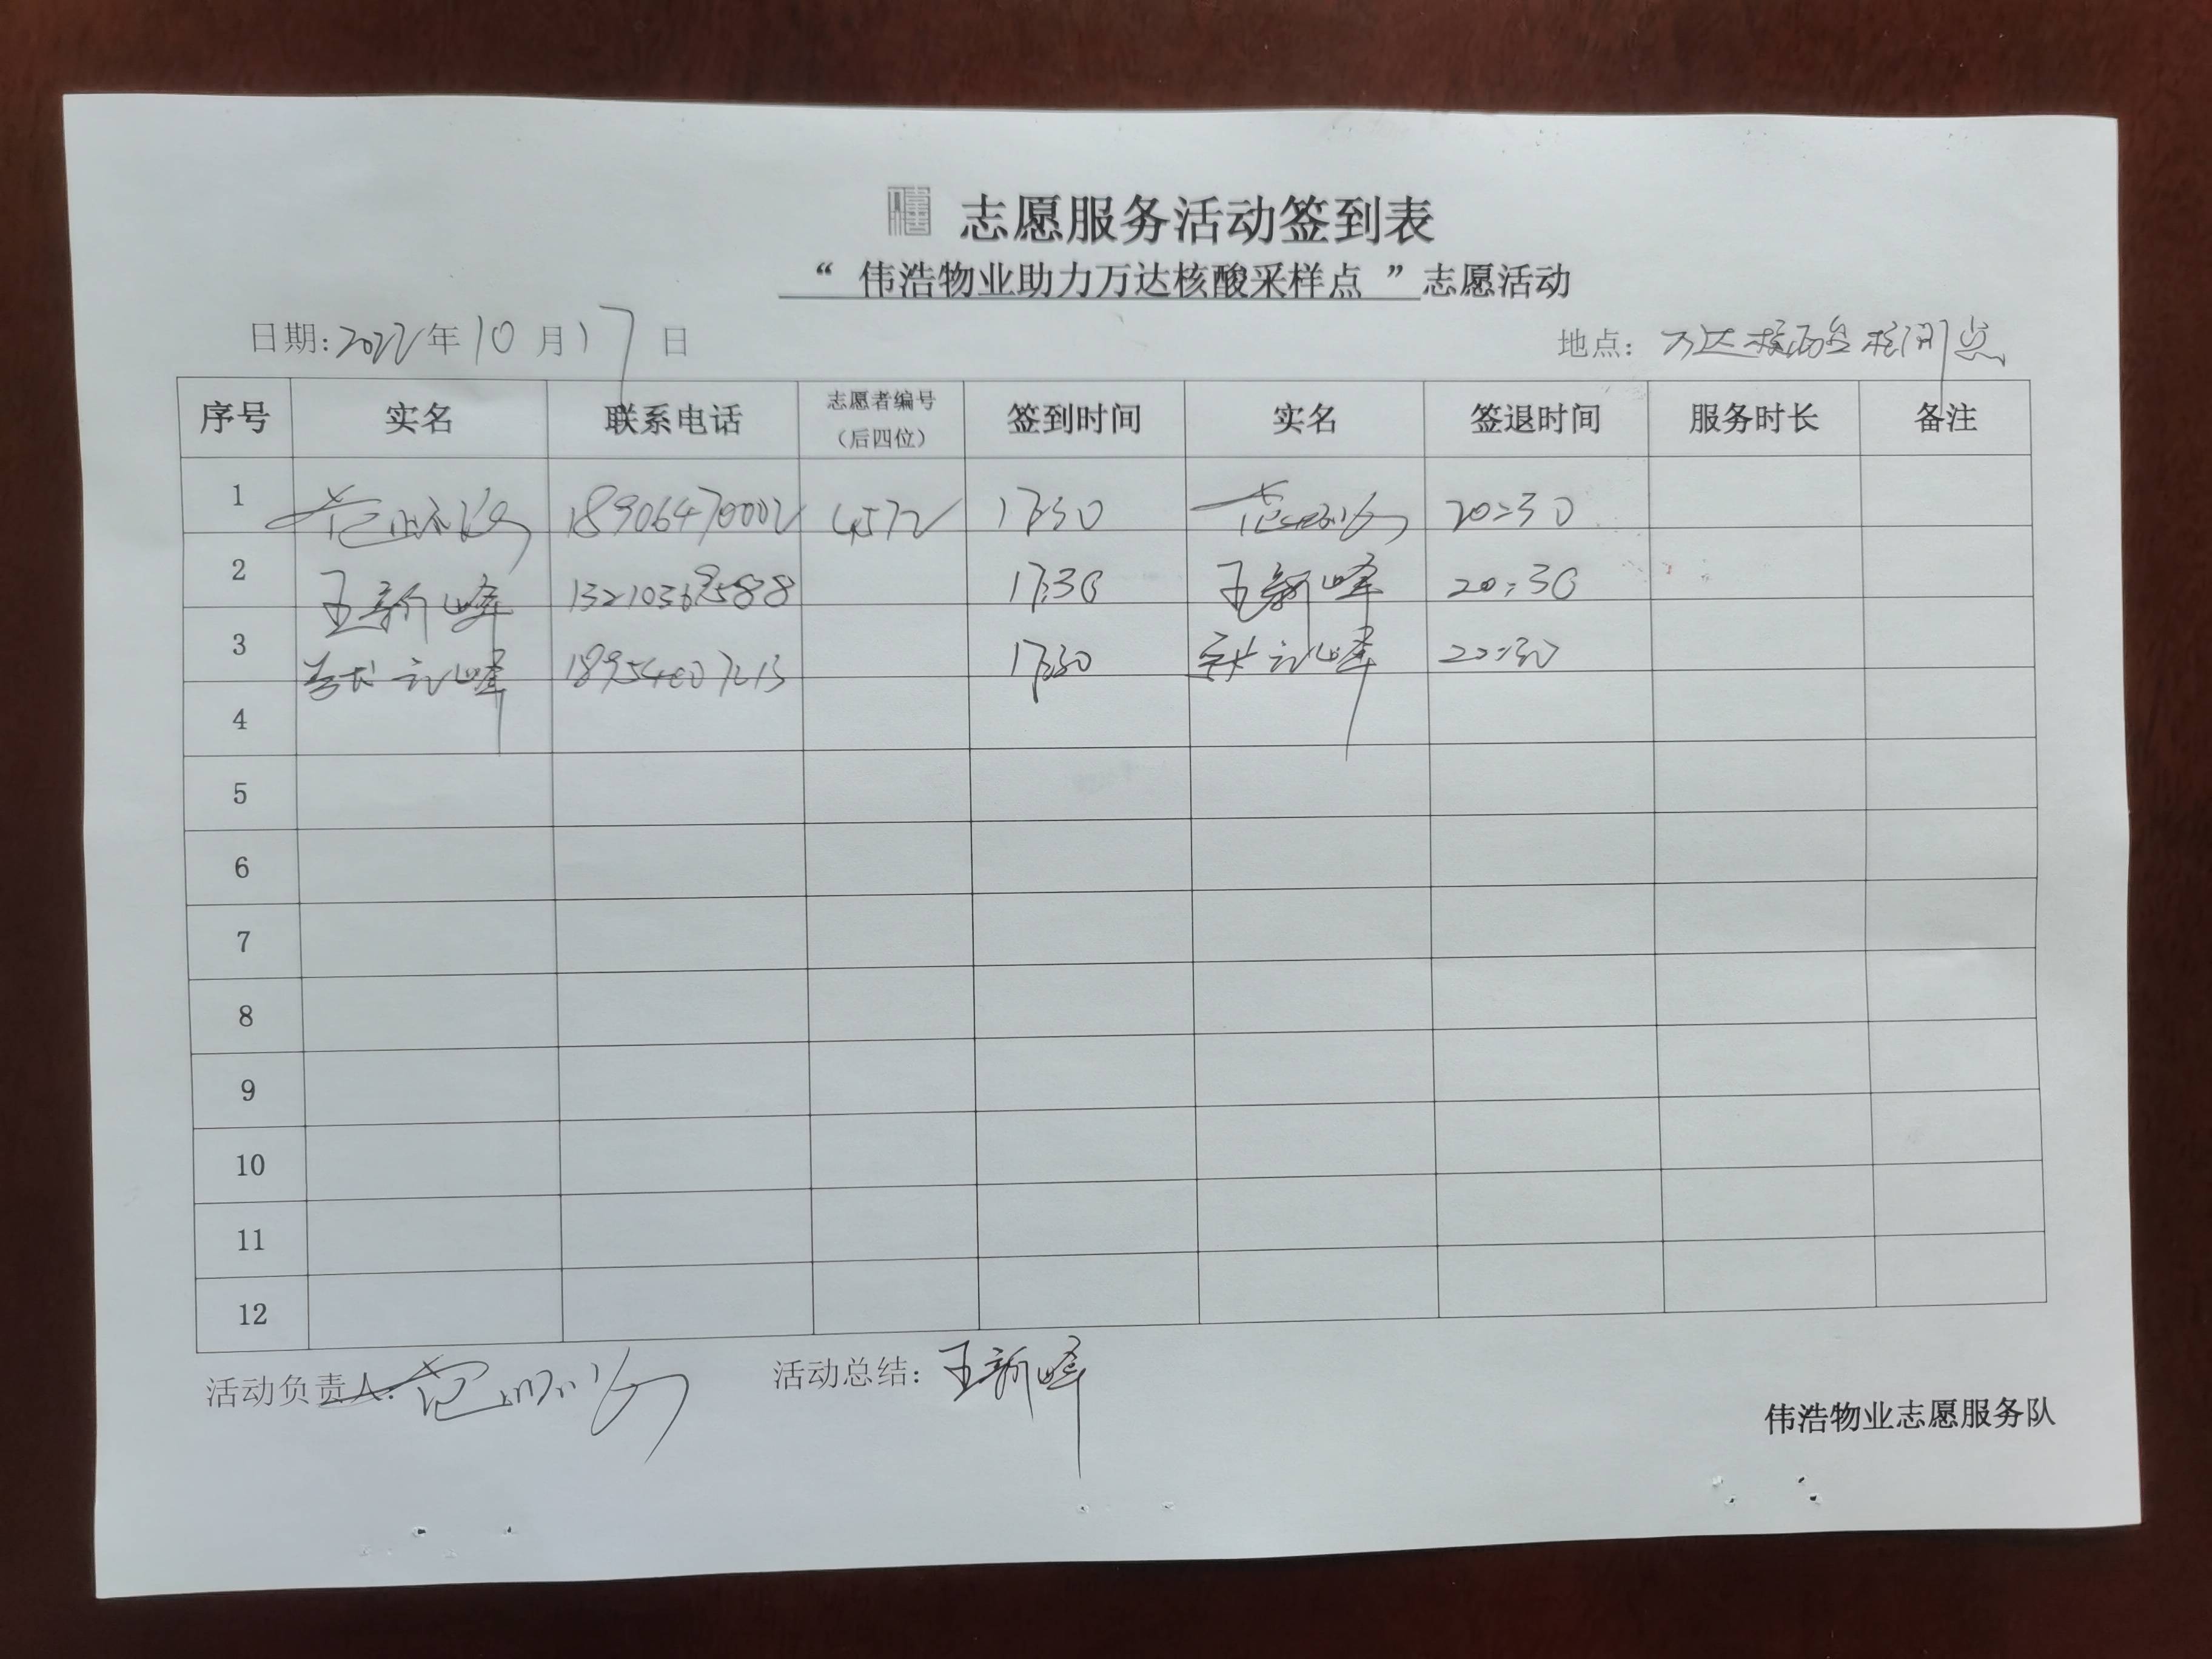 志愿服务活动签到表
“ 伟浩物业助力万达核酸采样点 ”志愿活动
日期:2022年10月17日 地点: 万达核酸检测点
序号 实名 联系电话 志愿者编号（后四位） 签到时间 实名 签退时间 服务时长 备注
1 范 18906470002 4572 17:30 范 20:30
2 王新峰 13210369588 17:30 王新峰 20:30
3 峰 17:30 峰
4
5
6
7
8
9
10
11
12
活动负责人: 范 活动总结: 王新峰
伟浩物业志愿服务队